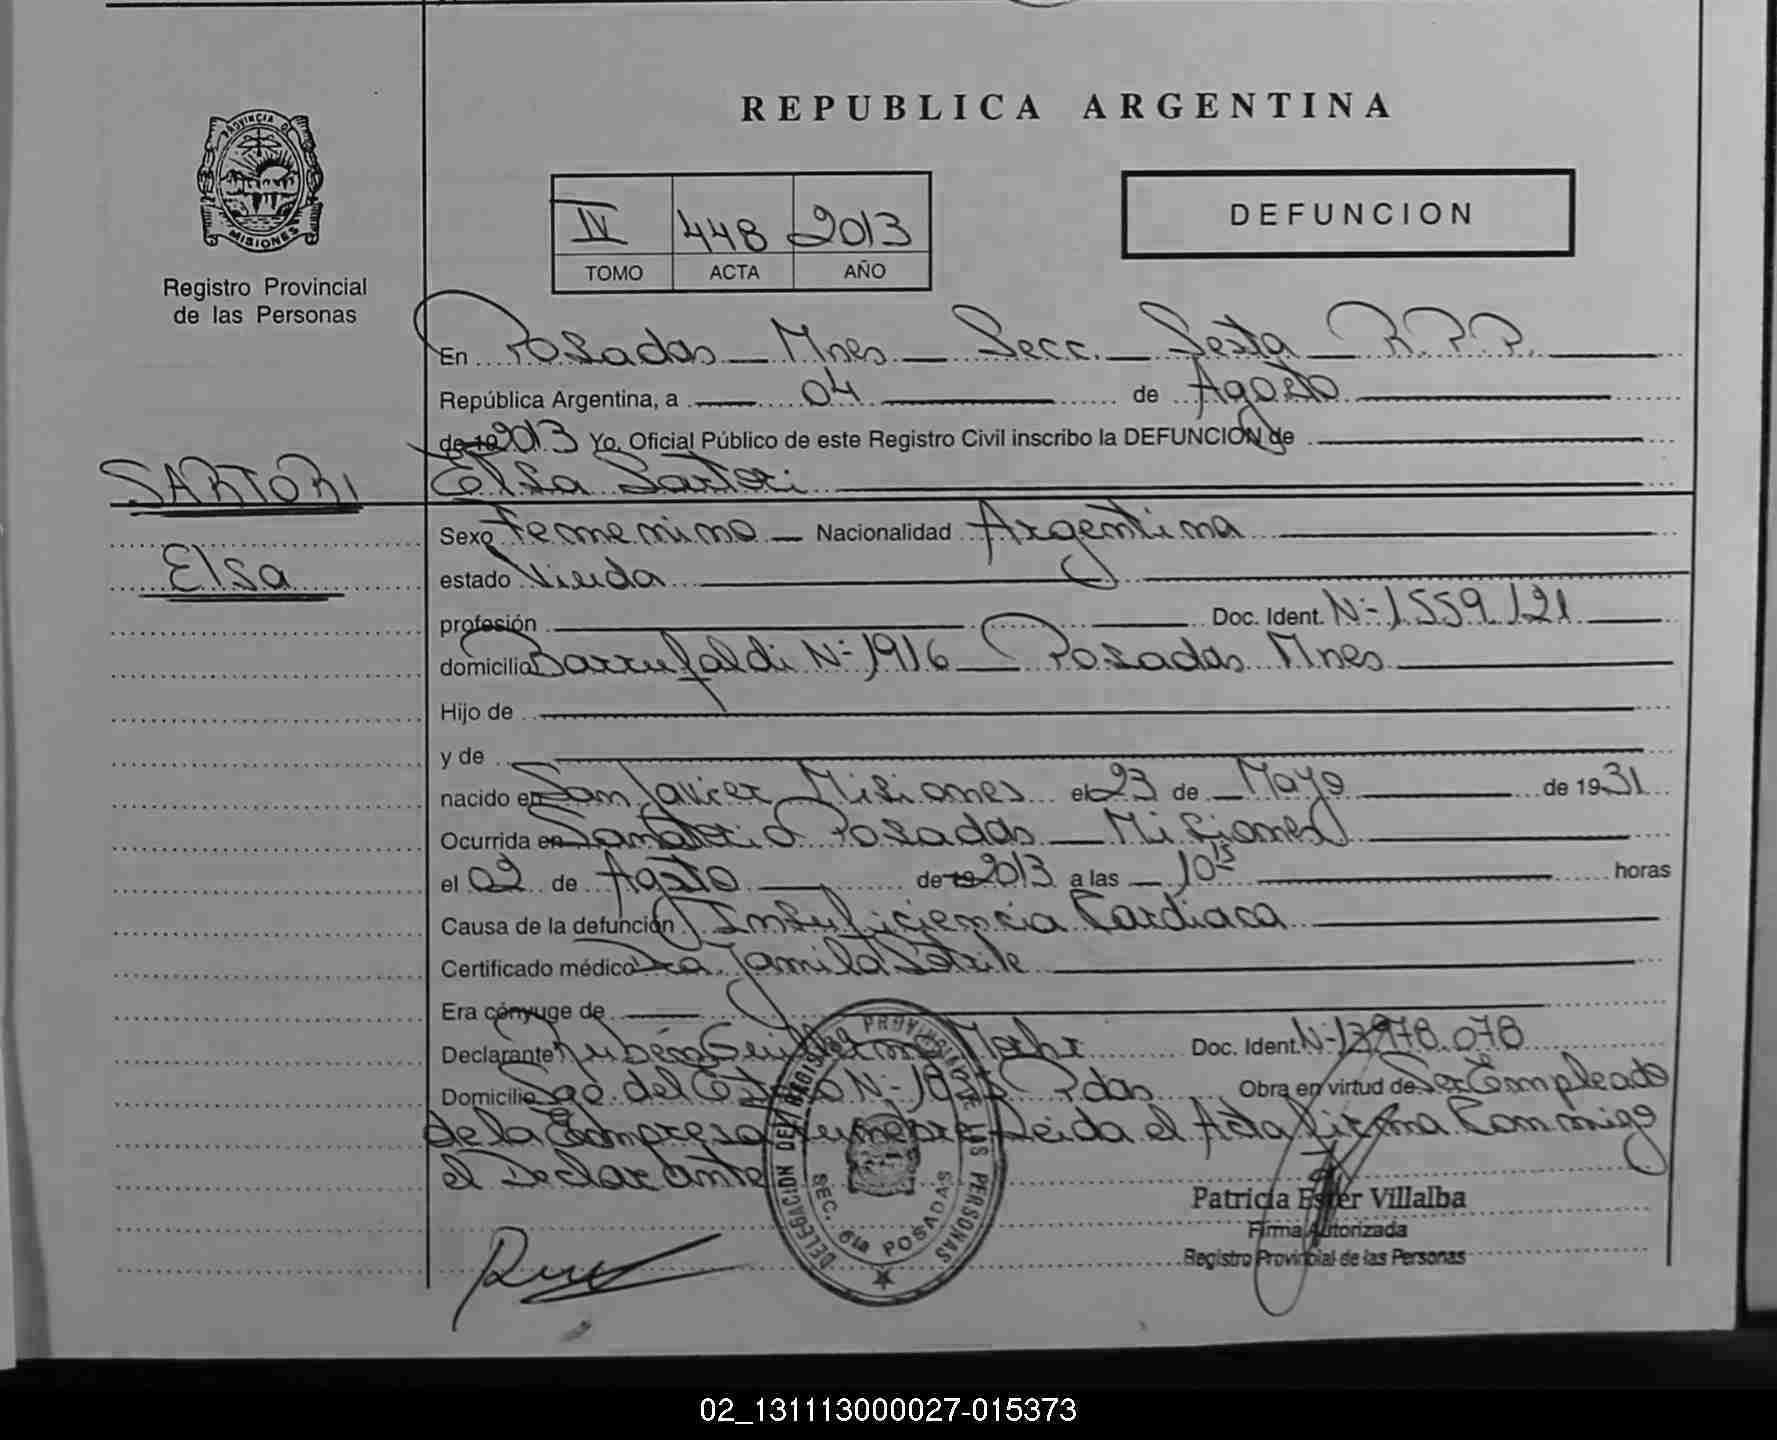 REPUBLICA ARGENTINA
PROVINCIA DE
MISIONES
Registro Provincial
de las Personas
IV 448 2013
TOMO ACTA AÑO
DEFUNCION
SARTORI
Elsa
En Posadas Mnes Secc. Sexta R.P.P.
República Argentina, a 04 de Agosto
de 19 2013 Yo, Oficial Público de este Registro Civil inscribo la DEFUNCION de
Elsa Sartori
Sexo Femenino Nacionalidad Argentina
estado Viuda
profesión Doc. Ident. Nº 1.559.121
domicilio Barrufaldi Nº 1916 Posadas Mnes
Hijo de
y de
nacido en San Javier Misiones el 23 de Mayo de 1931
Ocurrida en Sanatorio Posadas Misiones
el 02 de Agosto de 19 2013 a las 10 15 horas
Causa de la defunción Insuficiencia Cardiaca
Certificado médico Dra.
Era cónyuge de
Declarante Rubén Guillermo Doc. Ident. Nº
Domicilio Sgo. del Estero Nº Pdas Obra en virtud de Ser Empleado
de la Empresa Leida el Acta firma Conmigo
el Declarante
DELEGACION DEL REGISTRO PROVINCIAL DE LAS PERSONAS
SEC. 6ta POSADAS
Patricia Ester Villalba
Firma Autorizada
Registro Provincial de las Personas
02_131113000027-015373